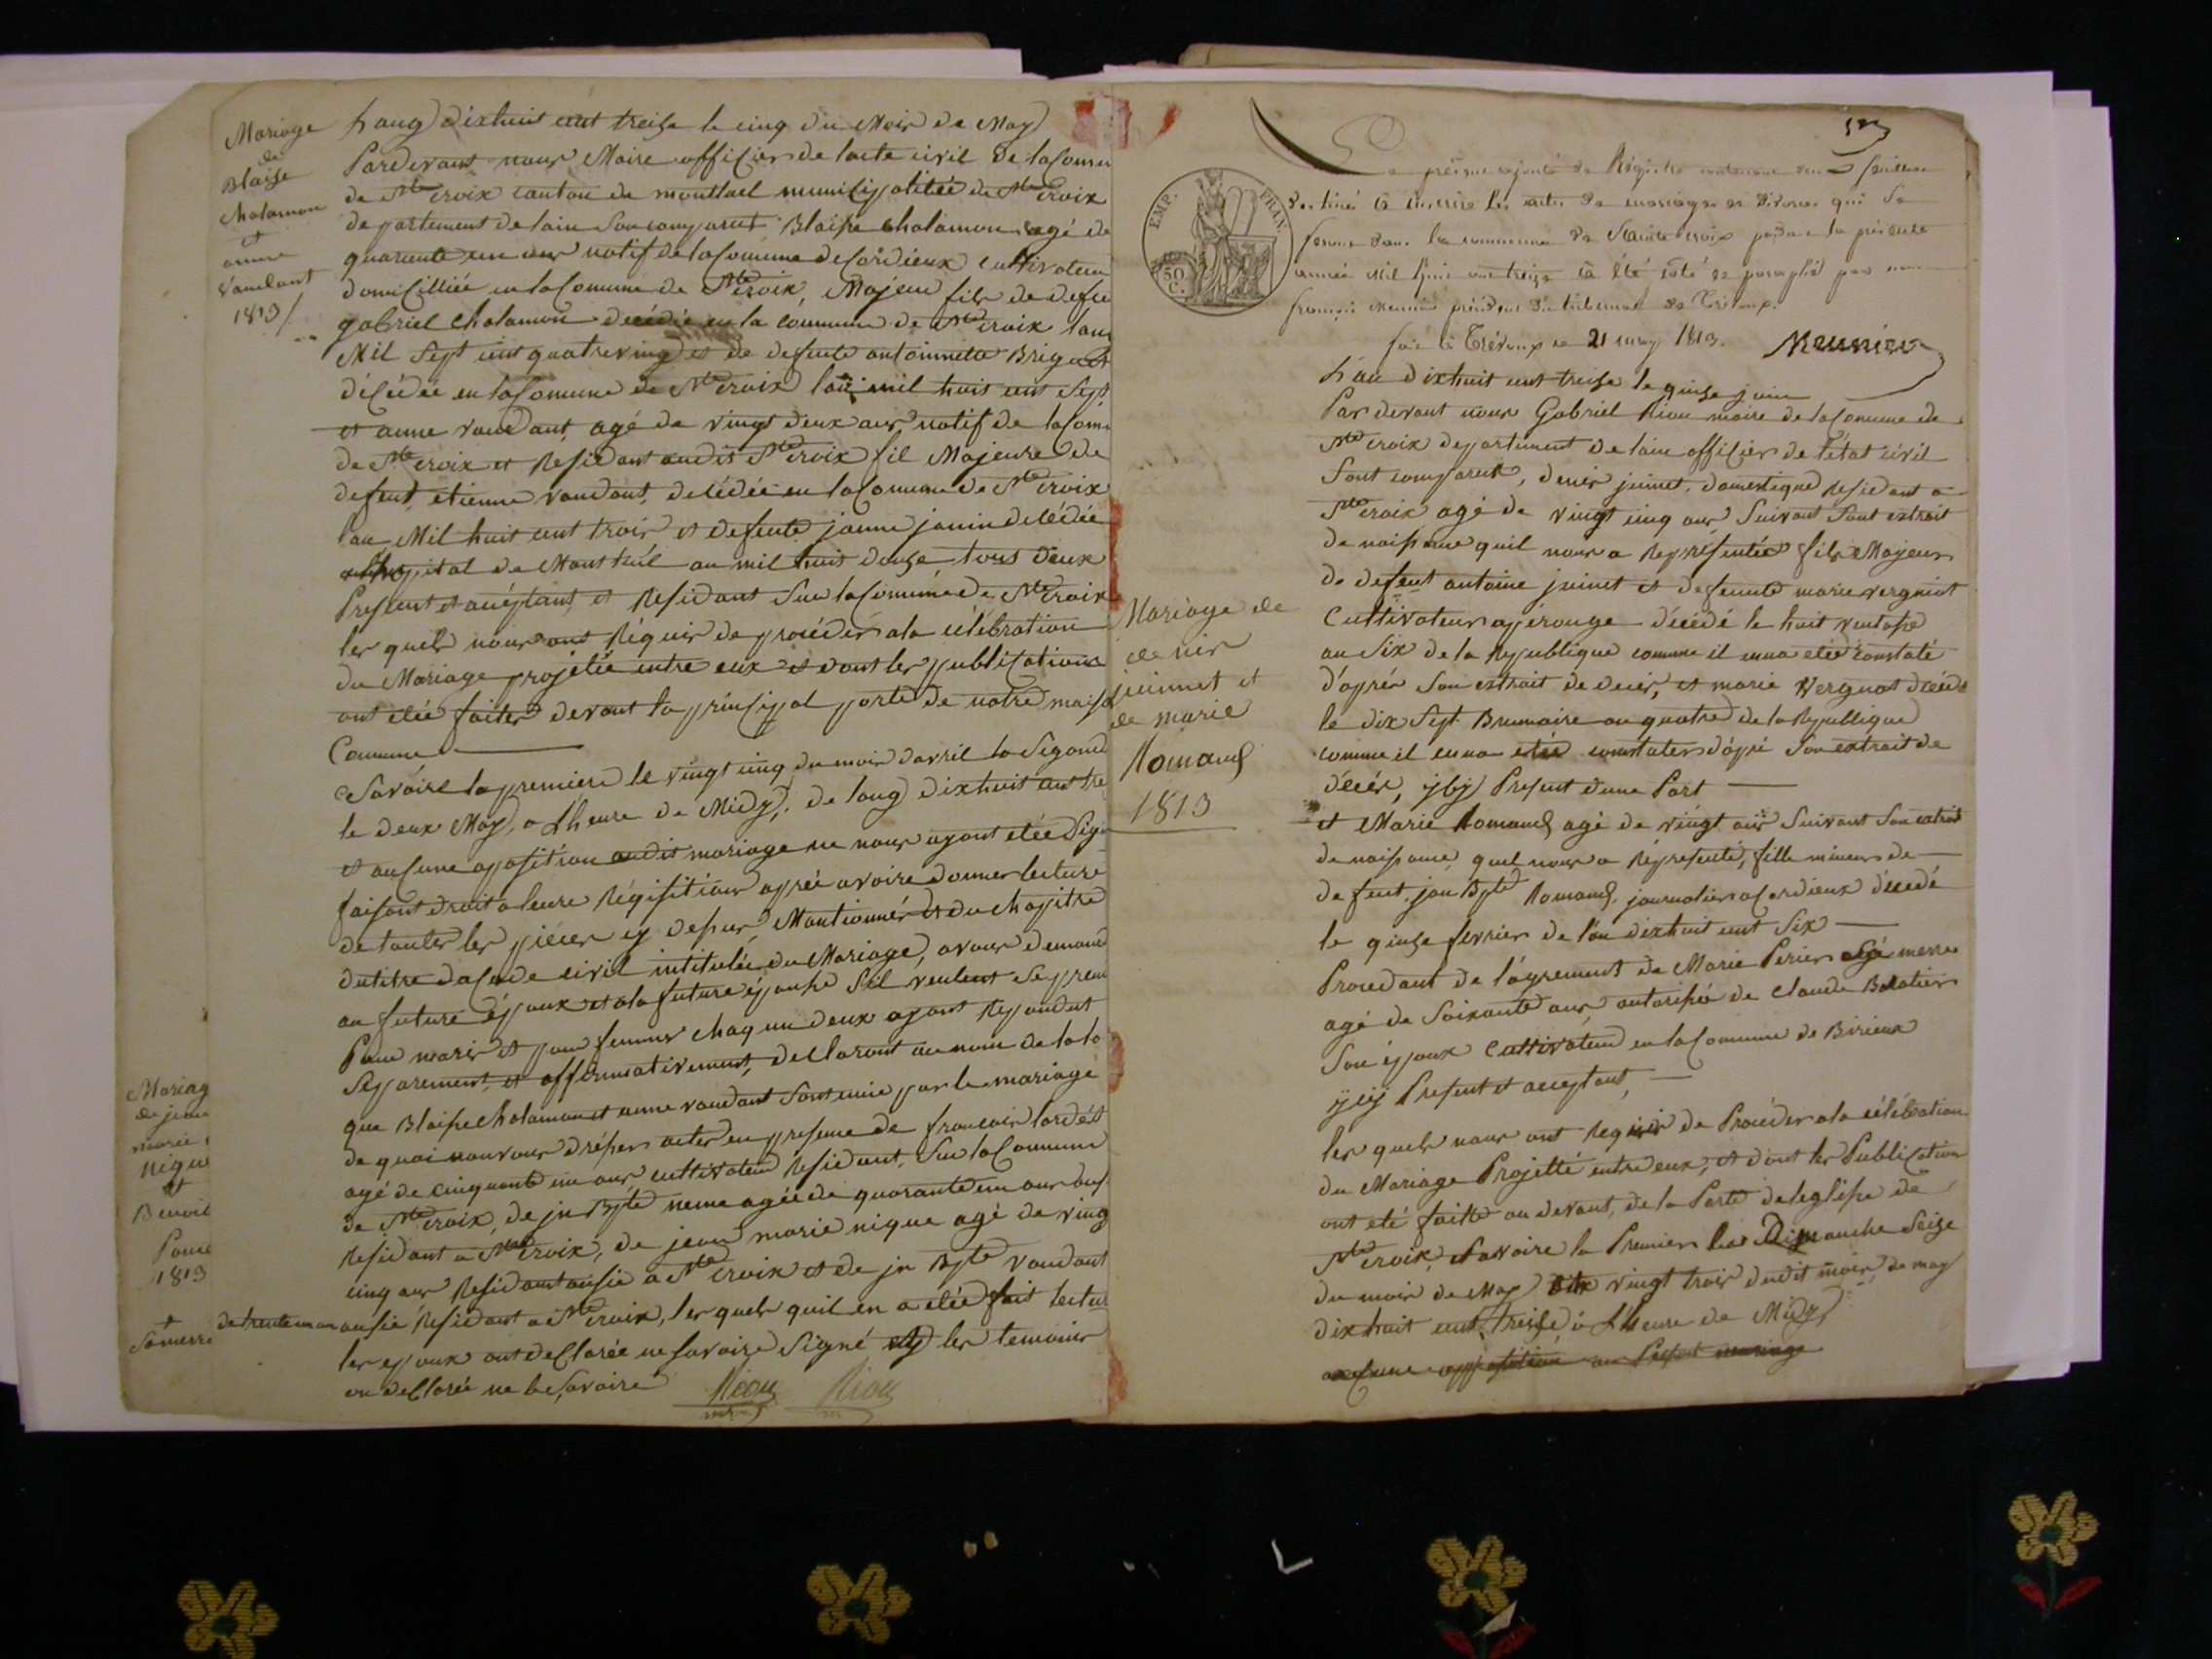 Mariage
de
Blaise
Chalamon
et
anne
Vaudant
1813
Lang dixhuit cent treise le cinq du Mois de May
Pardevant nous Maire officier de lacte civil de la Comu
de Ste Croix canton de montluel municipalitée de Ste Croix
departement de lain Son comparut Blaise chalamon agé de
quarante un ans natif de la Comune de Cordieux cultivateur
domicilliée en la Comune de Ste croix, Majeur fils de defu
gabriel chalamon decédée en la commune de Ste croix lan
Mil Sept cent quatreving et de defunte antoinette Brig
décédée en la Comune de Ste croix lan mil huit cent Sept
et anne vaudant, agé de vingt deux ans natif de la Com
de Ste croix et Residant audit Ste croix fil Majeure de
defunt etienne vaudant, decédée en la Comune de Ste Croix
lan Mil huit cent trois et defunte janne janin decédée
hopital de Montluel an mil huit douze tous deux
Present et acceptant et Residant Sur la Comune de Ste Croix
les quels nous ont Réquis de procéder a la célébration
du Mariage projetée entre eux et dont les publications
ont etée faites devant la principal porte de notre maiso
Commune
Savoire la premiere le vingt cinq du mois davril la Segond
le deux May, a Lheure de Midy, de lang dixhuit cent tre
et aucune oposition audit mariage ne nous ayant etée Sig
faisant droit a leure Réquisitions apprée avoire donner lecture
de toutes les pièces cy desus Mantionnér et du chapitre
du titre du Code civil intitulée du Mariage, avons demand
au future époux et a la future épouse Sil veulent Se pren
Pour maris et pour femmes chaqun deux ayant Repondut
Separement et affirmativement, declaront au nom de la lo
que Blaise chalamon et anne vaudant Sont unie par le mariage
de quoi nous avons drésser acte en presence de francois lardét
agé de cinquante un ans cultivateur Residant, Sur la Comune
de Ste croix, de jn Bpte neme agée de quarante un ans
Residant a Ste Croix, de jean marie nique agé de ving
cinq ans Residant ausie a Ste croix et de jn Bpte vaudant
de trente un an ausie Residant a Ste croix, les quels quil en a etée fait lectur
les epoux ont declarée ne Savoire Signé les temoins
on declarée ne le Savoire
Riou Riou
Mariag
de jean
marie
nique
et
Benoit
Ponc
1813
+
Somerre
EMP. FRAN.
50 C.
Le présent ajouté de Régistre contenant deux feuillets
destiné à inscrire les actes de mariages et divorces qui Se
feront dans la commune de Sainte croix pendant la présente
année Mil huit cent treize a été coté et paraphé par nous
françois Meunier président du tribunal de Trévoux
fait à Trévoux le 21 may 1813. Meunier
Mariage de
denis
juinnet et
de marie
Romand
1813
Lan dixhuit cent treise le quinse juin
Par devant nous Gabriel Riou maire de la Comune de
Ste croix departement de lain officier de l'état civil
Sont comparut, denis juinet, domestique Residant a
Ste croix agé de vingt cinq ans Suivant Sont extrait
de naissance quil nous a Représentée fils Majeur
de defunt antoine juinet et defunte marie vergniot
Cultivateur a pérouge décédé le huit ventose
an Six de la Republique comme il nous etée constaté
d'aprés Son extrait de deces, et marie Vergnat décéd
le dix Sept Brumaire an quatre de la Republique
comme il en a etée constater d'apré Son extrait de
décés, ycy Present dune Part
et Marie Romand agé de vingt ans Suivant Son extrait
de naissance quel nous a Répresenté, fille mineure de
defeut, jean Bpte Romand, journalier a Cordieux décedé
le quinse fevrier de l'an dixhuit cent Six
Procedant de l'agrement de Marie Perier Sa merre
agé de Soixante ans, autorisée de Claude Baratier
Son époux Cultivateur en la Comune de Birieux
ycy Present et acceptant,
les quels nous ont Requis de Procéder a la célébration
du Mariage Projetté entre eux, et dont les Publication
ont eté faitte au devant, de la Porte de leglise de
Ste croix, Savoire la Premier le Dimanche Seize
du mois de May vingt trois dudit mois de may
dixhuit cent, treise à Lheure de Midy
aucune opposition au Present mariage